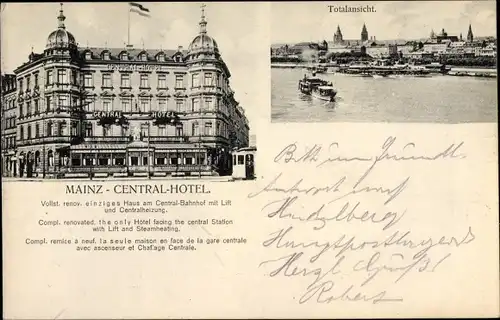 Totalansicht.
CENTRAL-HOTEL
CENTRAL HOTEL
MAINZ - CENTRAL-HOTEL.
Vollst. renov. einziges Haus am Central-Bahnhof mit Lift
und Centralheizung.
Compl. renovated. the only Hôtel facing the central Station
with Lift and Steamheating.
Compl. remice à neuf. la seule maison en face de la gare centrale
avec ascenseur et Chaffage Centrale.
Bitte um
Antwort auf
Heidelberg
Hauptpostlagernd
Herzl. Gruß!
Robert